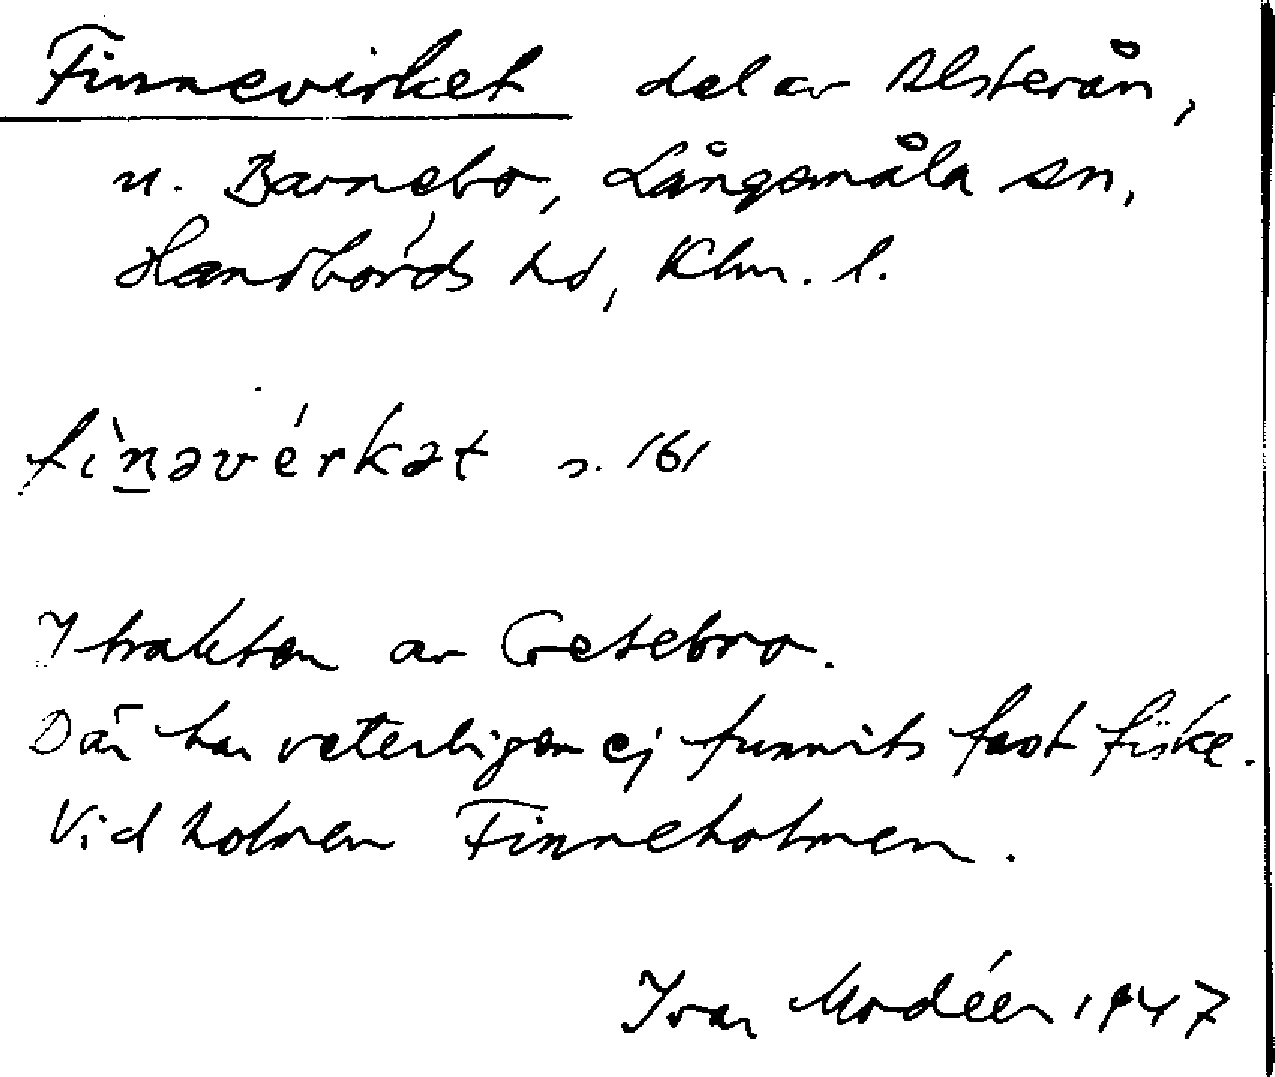 Finnevirket del av Alsterån,
u. Barnebo, Långemåla sn,
Handbörds hd, Klm. l.
fìnəvérkət s. 161
I trakten av Getebro.
Där har veterligen ej funnits fast fiske.
Vid holmen Finneholmen.
Ivar Modéer 1947